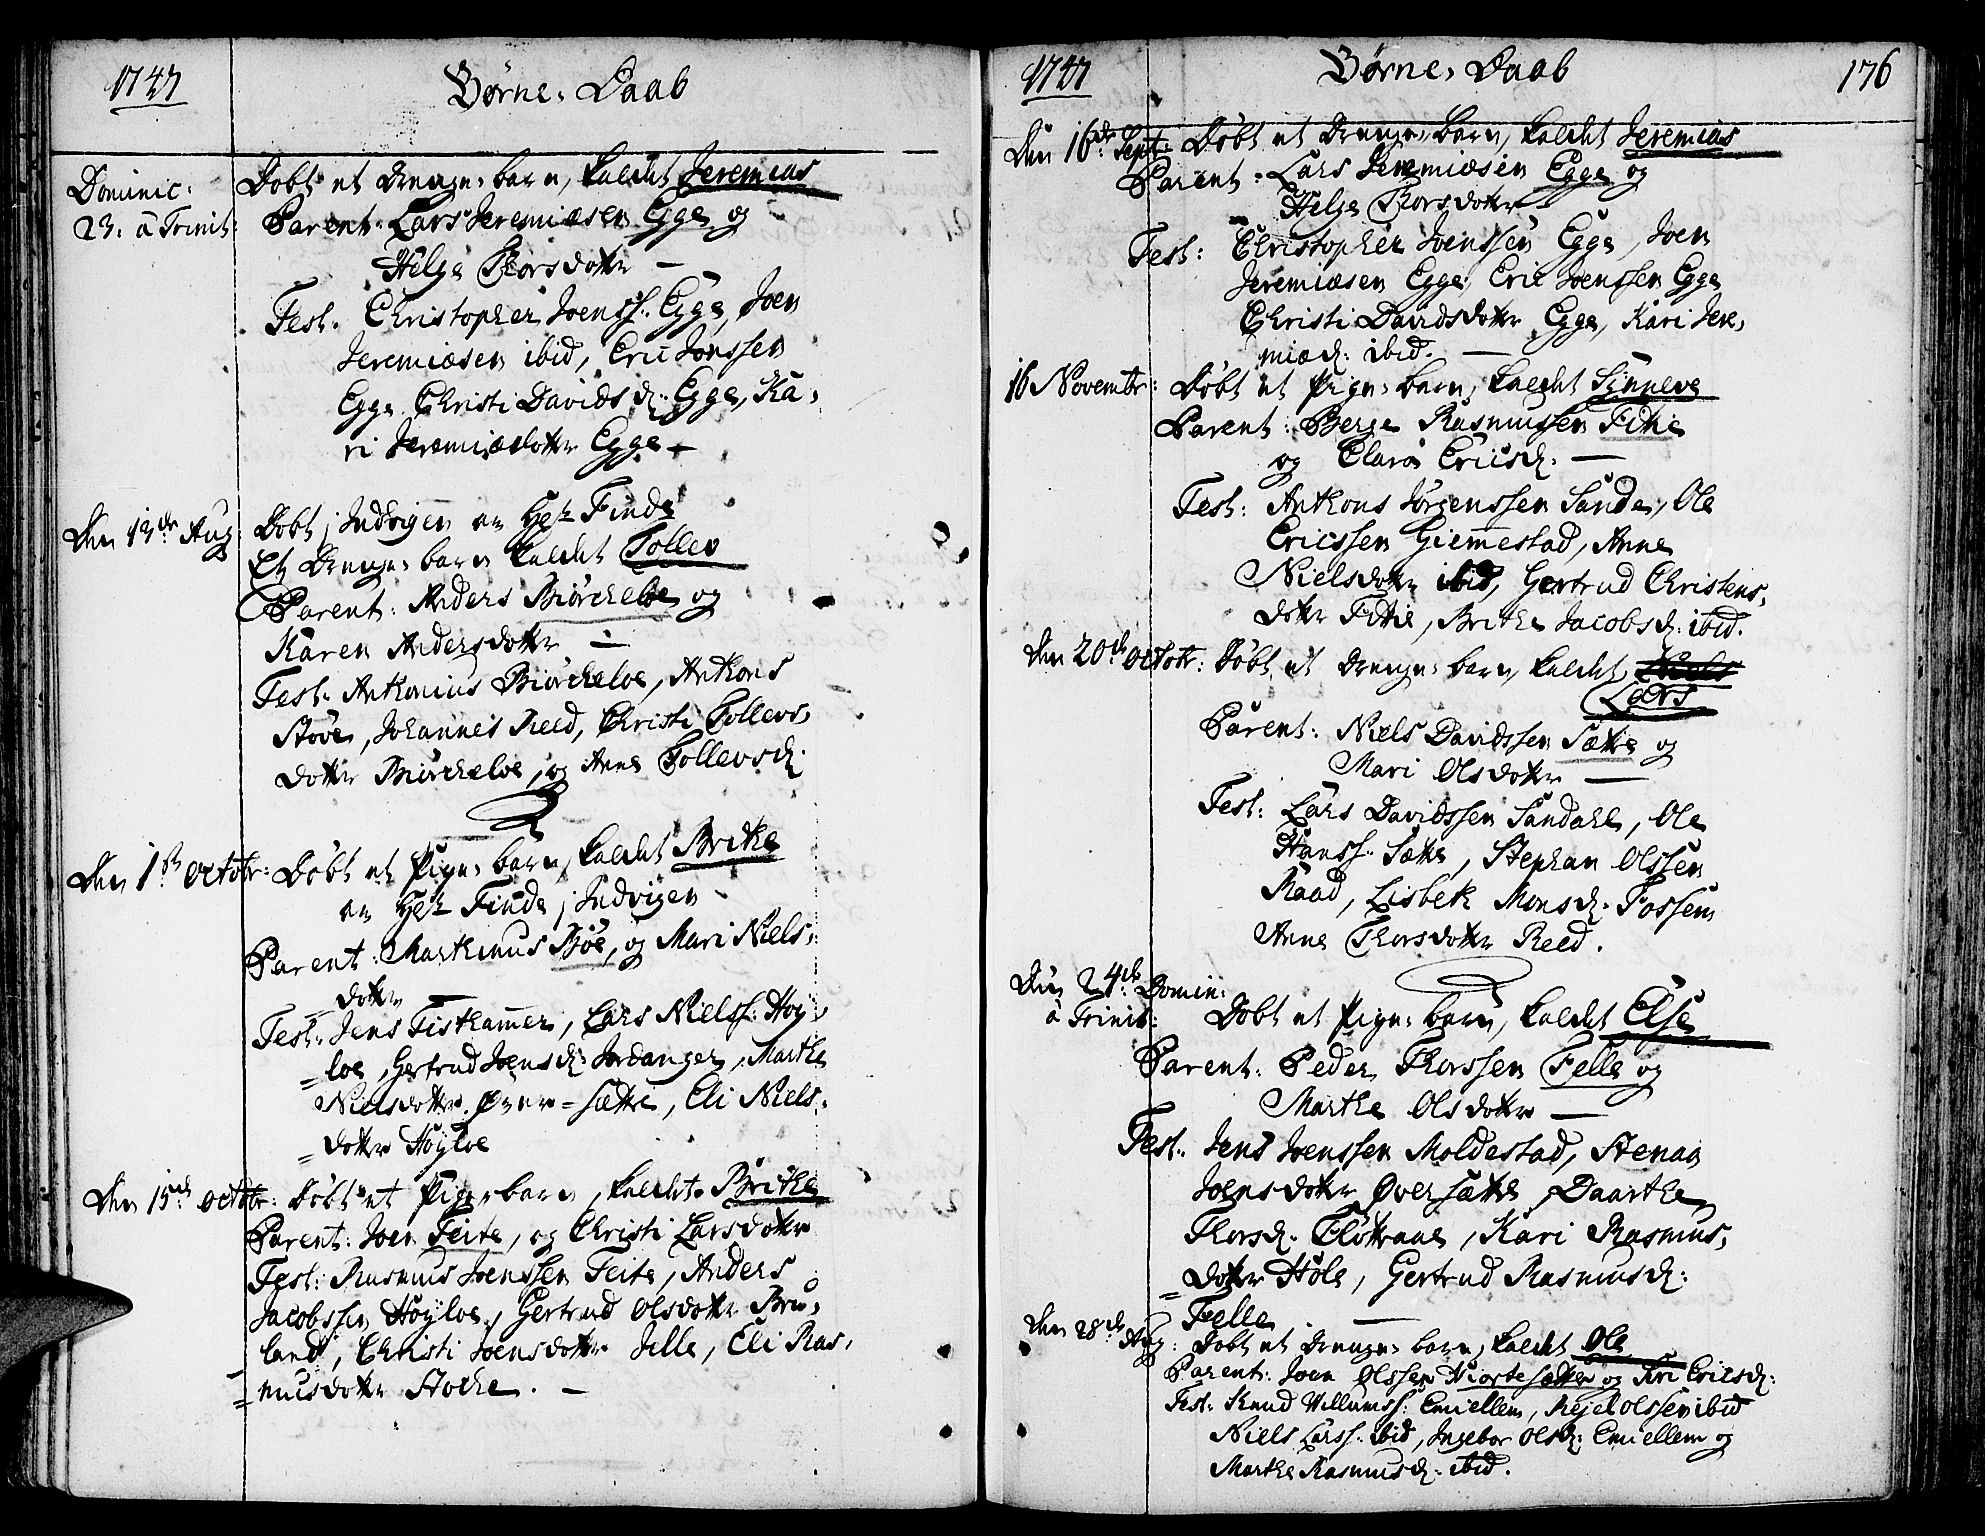 1747
Børne, Daab
Dominic:
23. à Trinit:
Døbt et Drenge, barn, kaldet Jeremias
Parent: Lars Jeremiæsen Egge og
Helge Thorsdotter —
Test. Christopher Joenss. Egge, Joen
Jeremiæsen ibid, Eric Jonssen
Egge. Christi Davids d. Egge, Ka,
ri Jeremiædotter Egge —
Den 13de Aug:
Døbt j Indvigen en Hest Finde
Et Drenge, barn kaldet Tollev
Parent: Anders Biørcheloe og
Karen Andersdotter —
Test. Anthonius Biørcheloe, Anthons
Støve, Johannes Reed, Christi Tollevs,
dotter Biørcheloe, og Anne Tollevsd.
Den 1ste Octobr:
Døbt et Pige, barn, kaldet Brithe
j Indvigen
Parent: Marthinus Bøe, og Mari Niels,
dotter —
Test. Jens Fistkammer, Lars Nielss. Høy,
=loe, Gertrud Joensd. Jordanger, Marthe
Nielsdotter Øvre=sættre, Eli Niels,
=dotter Høyloe
Den 15de Octobr:
Døbt et Pige, barn, kaldet Brithe
Parent: Joen Feite, og Christi Larsdotter
Test: Rasmus Joenssen Feite, Anders
Jacobssen Høyloe, Gertrud Olsdotter Bru,
land, Christi Joensdotter Jelle, Eli Ras,
=musdotter Stoche. —
1747
Børne, Daab
176
Den 16de Sept:
Døbt et Drenge, barn, kaldet Jeremias
Parent: Lars Jeremiæsen Egge og
Helge Thorsdotter
Test: Christopher Joenssen Egge, Joen
Jeremiæsen Egge, Eric Joenssen Egge
Christi Davidsdotter Egge, Kari Jere,
miæd: ibid. —
16 Novembr:
Døbt et Pige, barn, kaldet Sinneve
Parent: Berge Rasmussen Fitie
og Clara Ericsd. —
Test: Anthons Jørgenssen Sande, Ole
Ericssen Giemmestad, Anne
Nielsdotter ibid, Gertrud Christens,
dotter Fitie, Brithe Jacobsd: ibid.
Den 20de Octobr:
Døbt et Drenge, barn, kaldet Niels
Lars
Parent: Niels Davidssen Sættre og
Mari Olsdotter —
Test: Lars Davidssen Sandahl, Ole
Hanss. Sættre, Stephan Olssen
Raad, Lisbeth Monsd. Fossem
Anne Thorsdotter Reed.
Den 24de Domin:
à Trinit:
Døbt et Pige, barn, kaldet Else
Parent: Peder Thorssen Felle og
Marthe Olsdotter —
Test. Jens Joenssen Moldestad, Stenaa
Joensdotter Øversættre, Daarthe
Thorsd. Fløttraae, Kari Rasmus,
=dotter Hole, Gertrud Rasmusd:
Felle —
Den 28de Aug:
Døbt et Drenge, barn, kaldet Ole
Parent: Joen Olssen Hiortesætter og Siri Ericsd:
Test: Knud Willumss: Emellem, Kejel Olssen ibid
Niels Larss. ibid, Ingebor Olsd: Emellem og
Marthe Rasmusd. ibid.